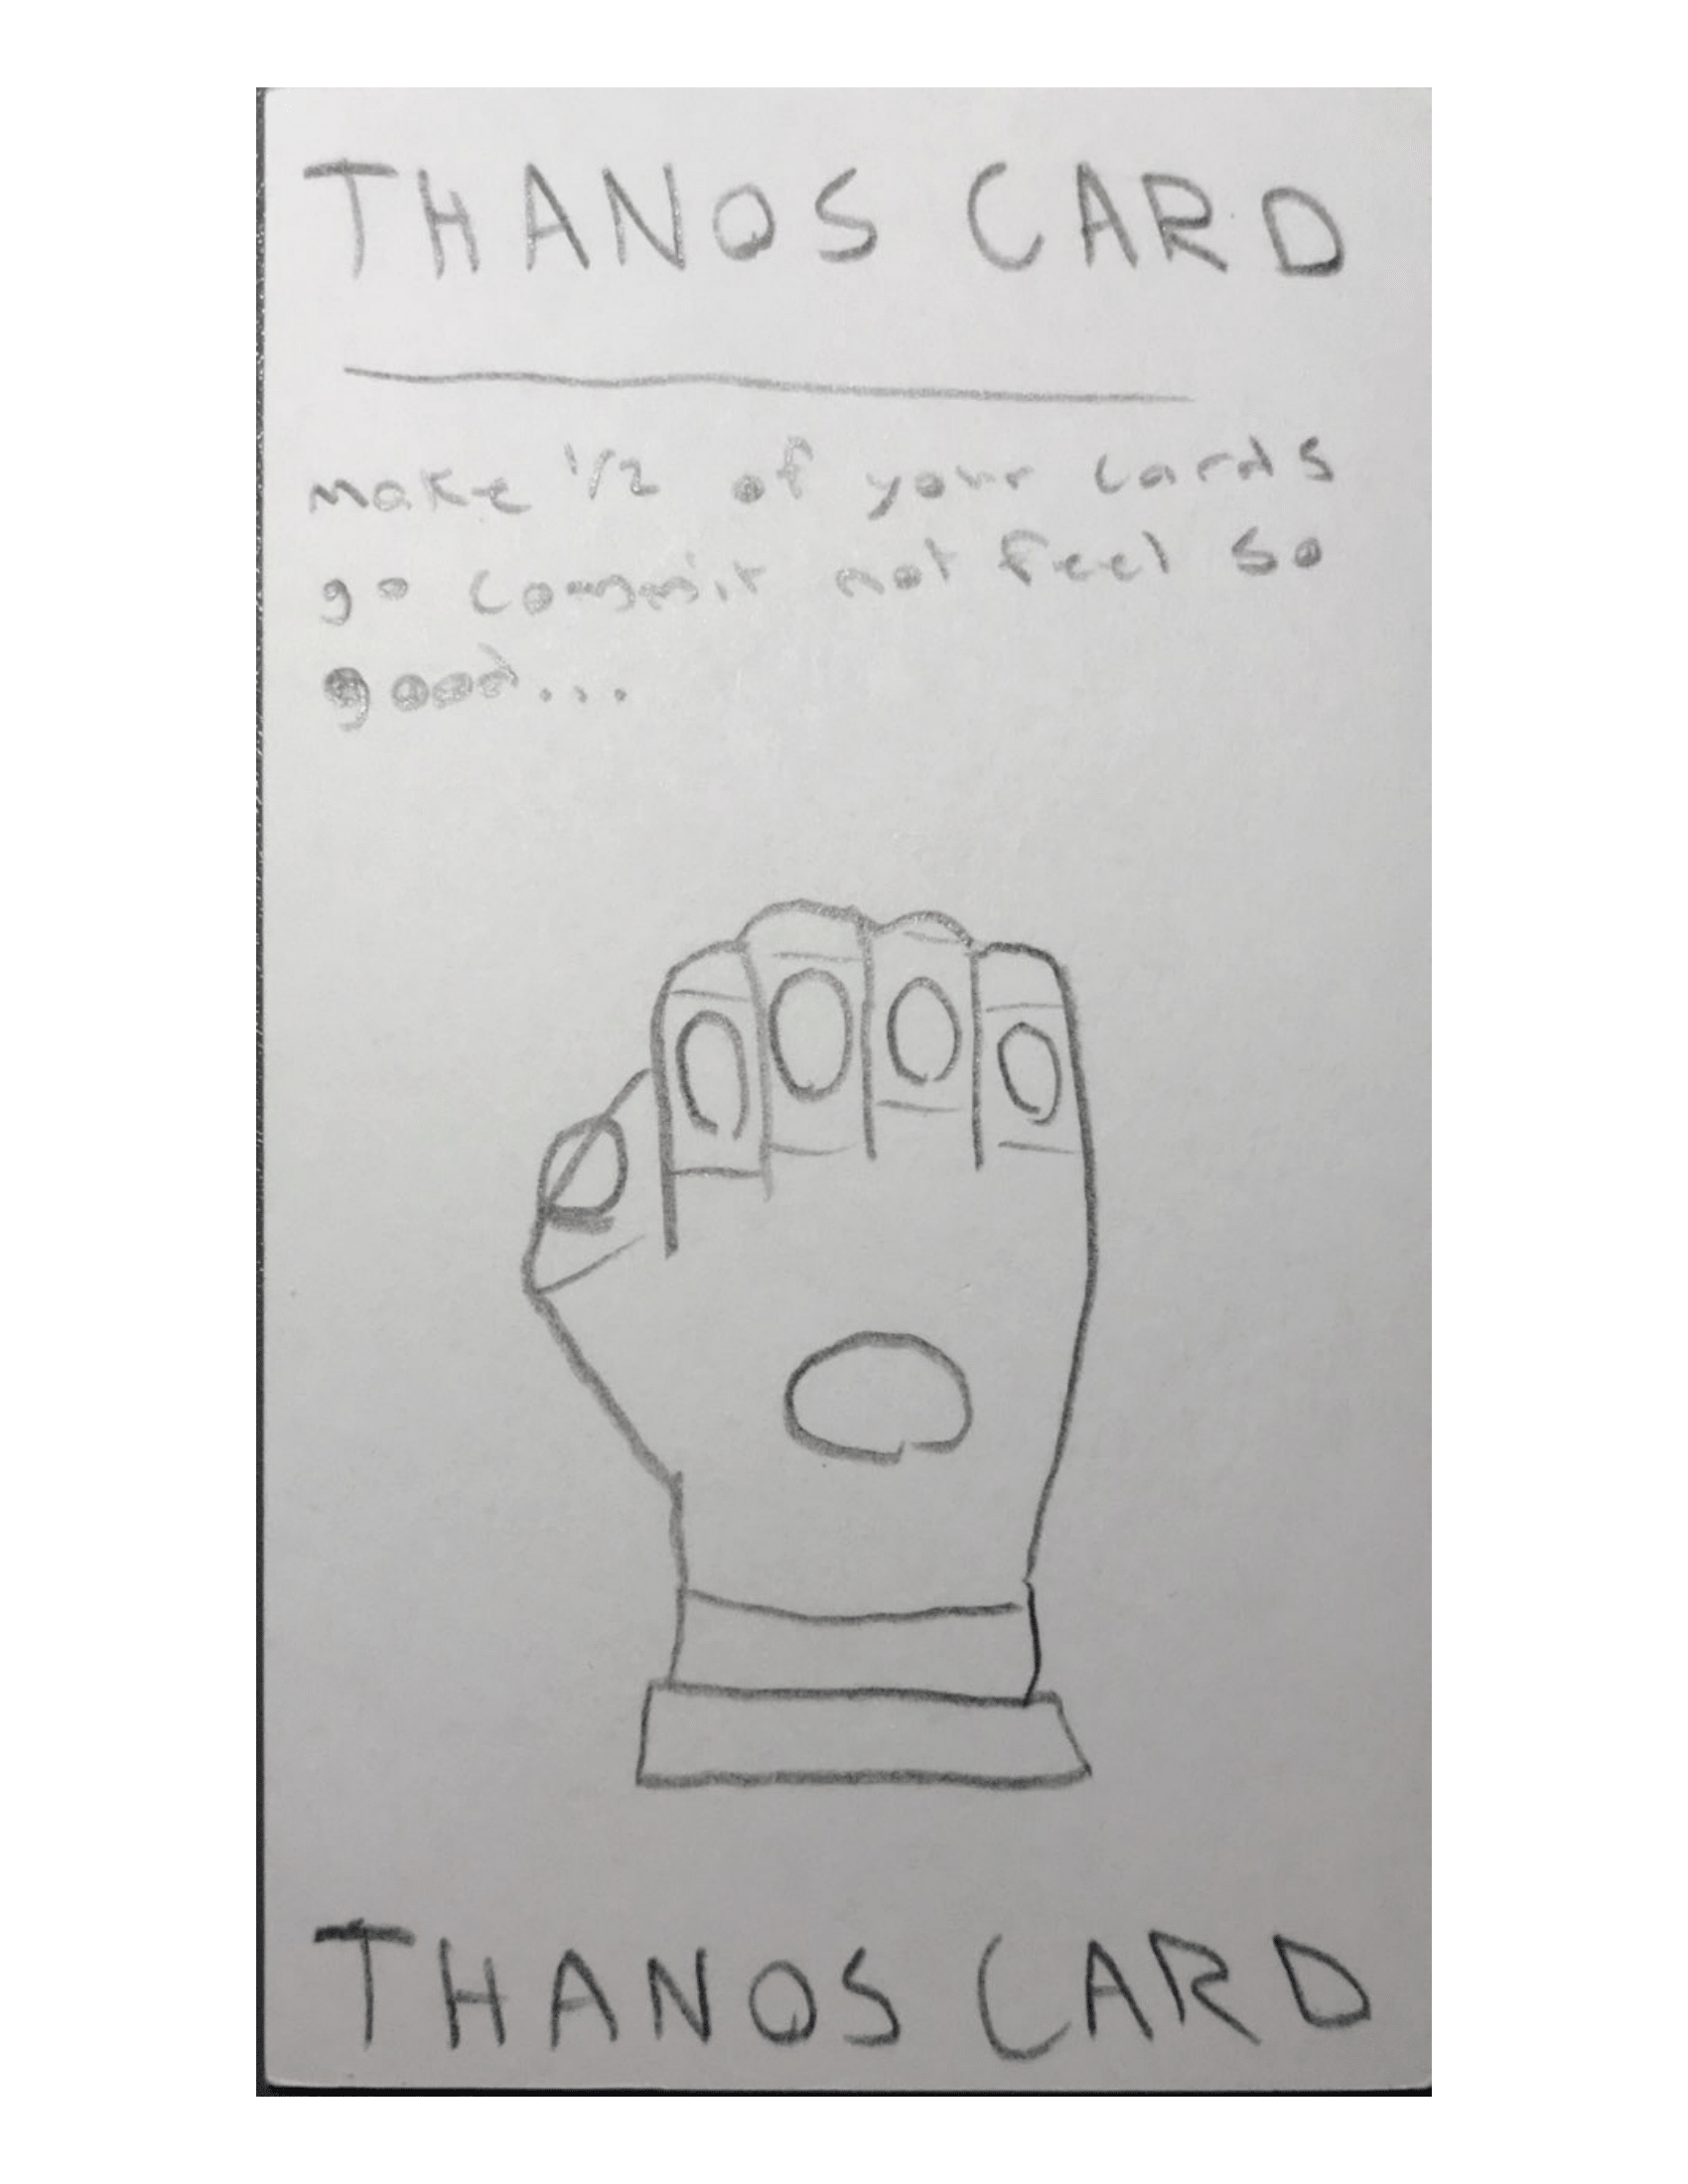 THANOS CARD
make 1/2 of your cards
go commit not feel so
good...
THANOS CARD